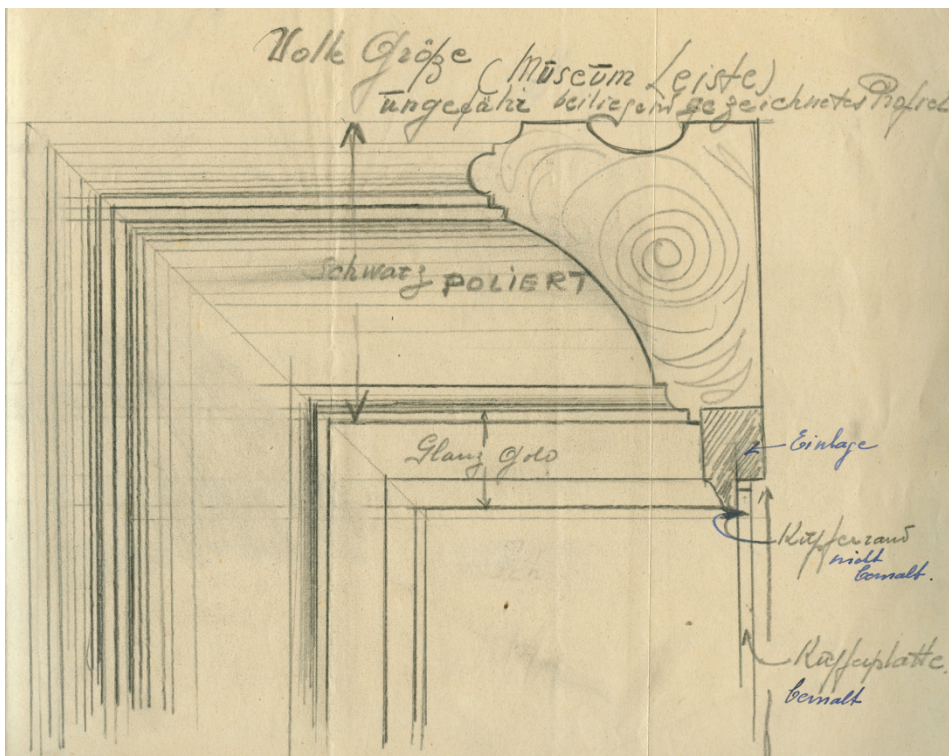 Volle Größe
(Museum Leiste)
ungefähr beiliegend gezeichnetes Profiel
Schwarz POLIERT
Glanz Gold
Einlage
Kupferrand
nicht
bemalt.
Kupferplatte
bemalt